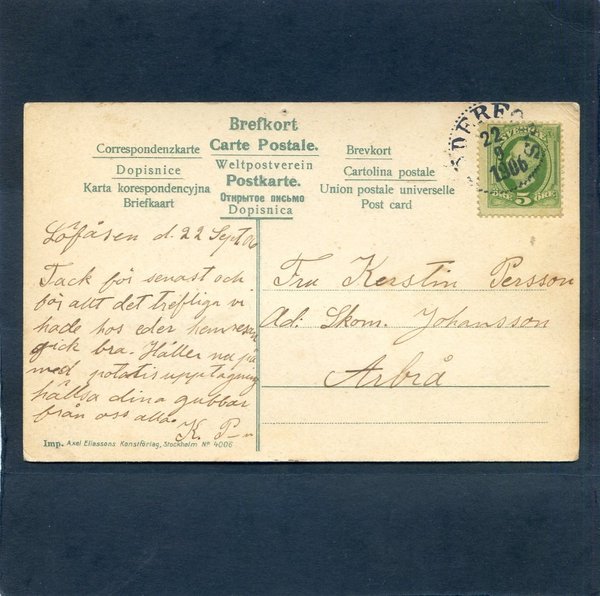 Brefkort
Correspondenzkarte Carte Postale. Brevkort
Dopisnice Weltpostverein Cartolina postale
Karta korespondencyjna Postkarte. Union postale universelle
Briefkaart Открытое письмо Post card
Dopisnica
22
9
1906
SVERIGE
5
ÖRE
Löfåsen d. 22 Sept 06
Tack för senast och
för allt det trefliga vi
hade hos eder hemresan
gick bra. Håller nu på
med potatisupptagning
hälsa dina gubbar
från oss alla.
K. P–n
Fru Kerstin Persson
Ad. Skom. Johansson
Arbrå
Imp. Axel Eliassons Konstförlag, Stockholm Nº 4006